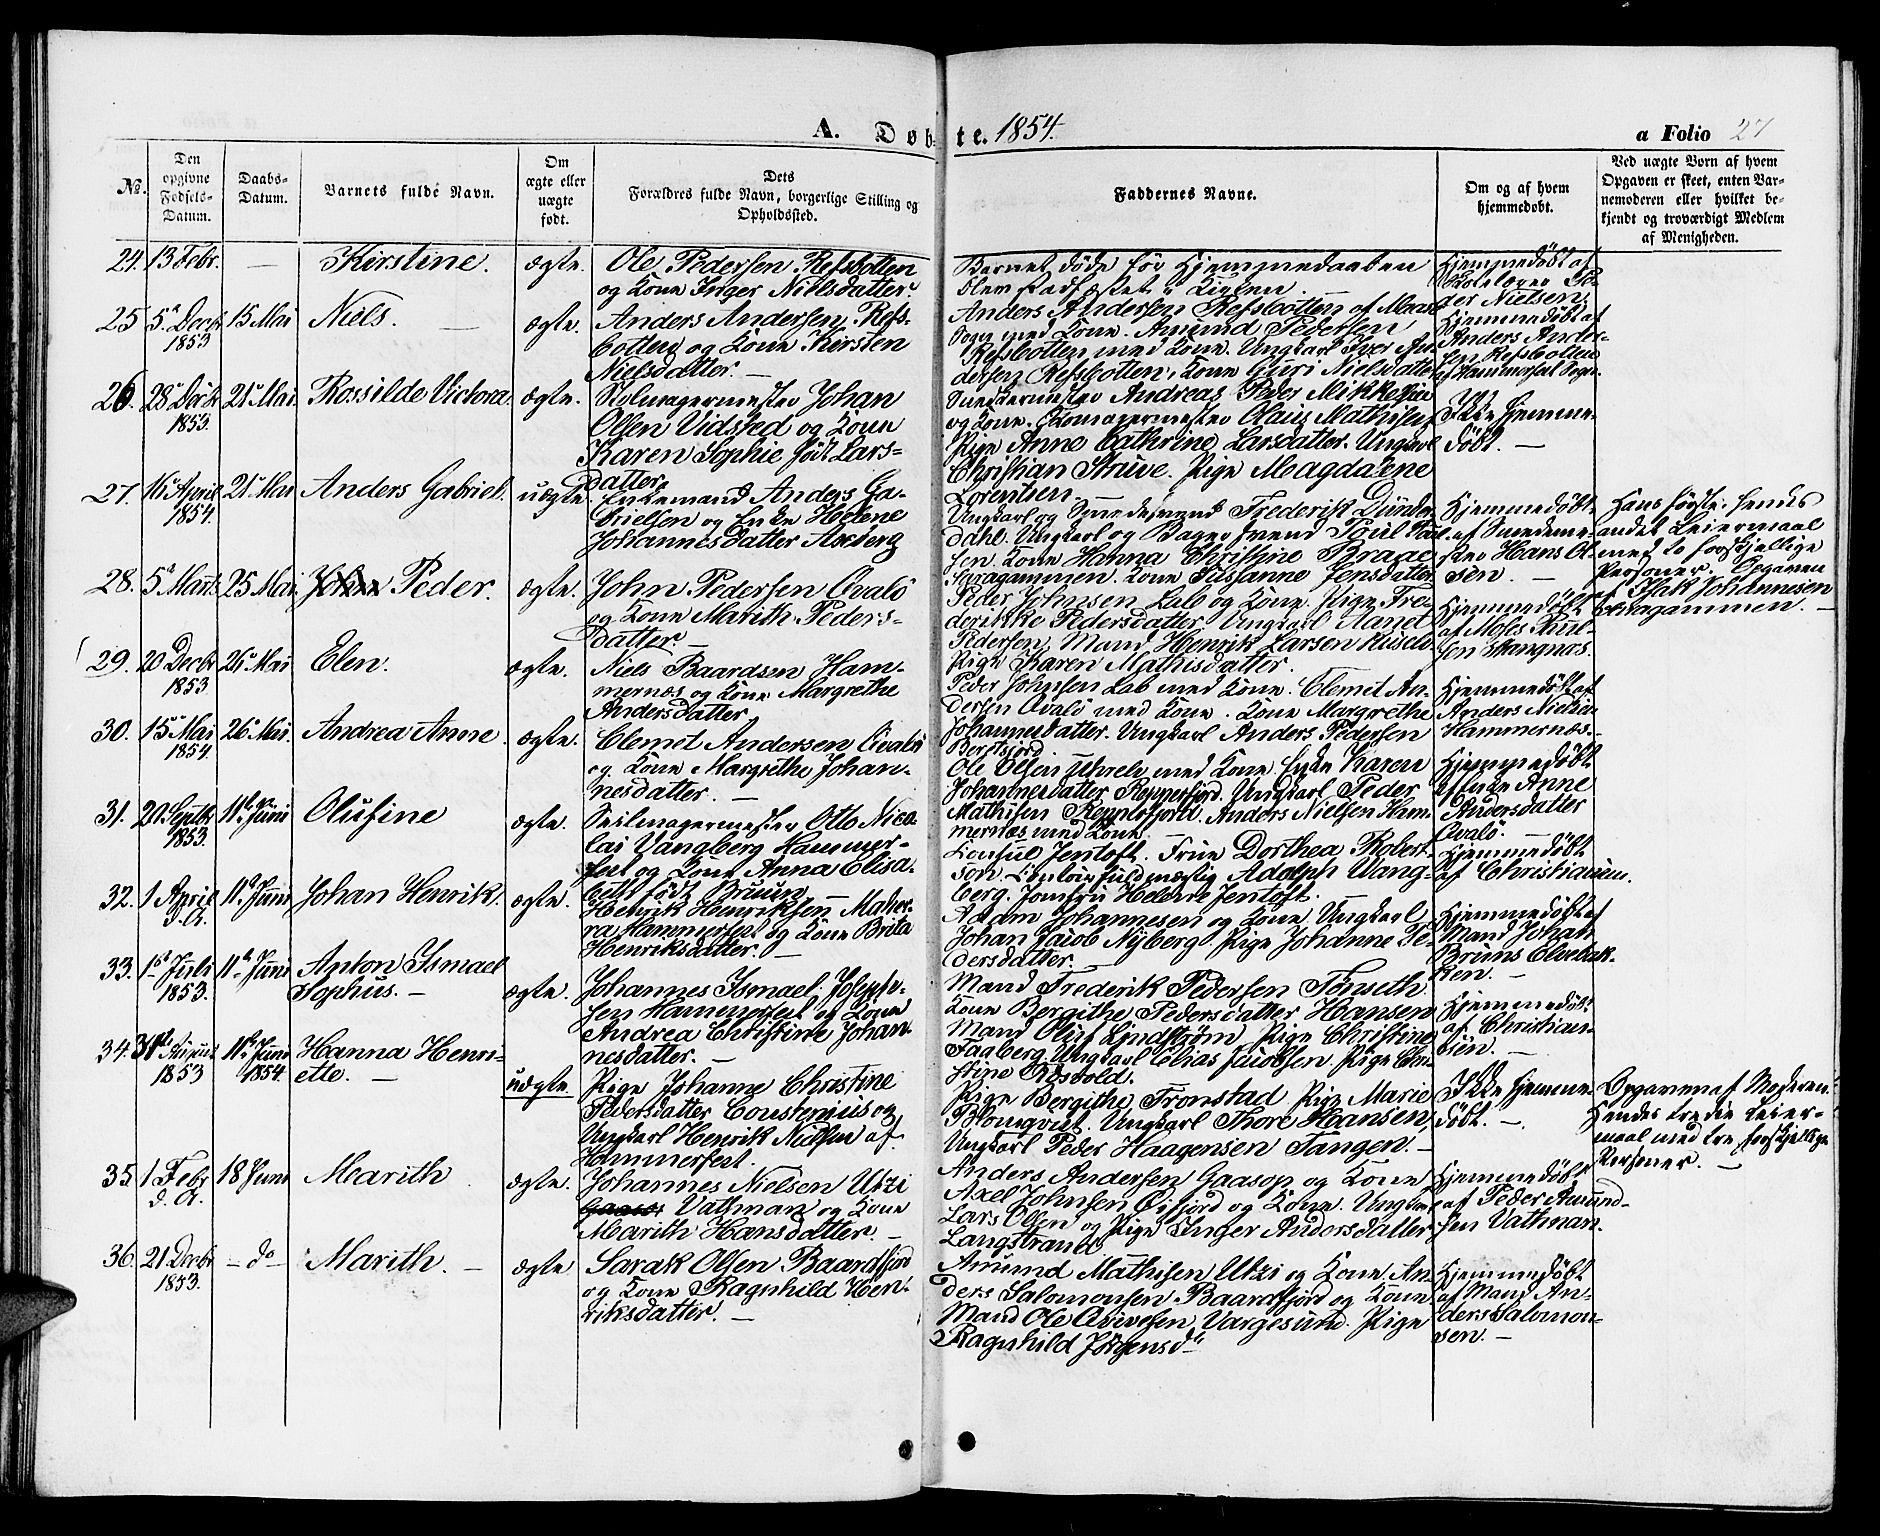 A. Døb- te. 1854.
a Folio 27
No.
Den opgivne Fødsels-Datum.
Daabs-Datum.
Barnets fulde Navn.
Om ægte eller uægte født.
Dets Forældres fulde Navn, borgerlige Stilling og Opholdssted.
Faddernes Navne.
Om og af hvem hjemmedøbt.
Ved uægte Born af hvem Opgaven er skeet, enten Bar-nemoderen eller hvilket be-kjendt og troværdigt Medlem af Menigheden.
24. 13 Febr. — Kirstine. ægte.
Ole Pedersen Refsbotten
og Kone Inger Nielsdatter.
Barnet døde før Hjemmedaaben
blev stadfæstet i Kirken.
Hjemmedøbt af
Peder Nielsen.
25 5te Decbr 1853 15 Mai Niels. — ægte.
Anders Andersen Refs-
botten og Kone Kirsten
Nielsdatter. —
Anders Andersen Refsbotten af
Sogn med Kone. Amund Pedersen
Refsbotten med Kone. Ungkarl Iver An-
dersen Refsbotten, Kone Guri Nielsdatter
Hjemmedøbt af
Anders Ander-
sen Refsbotten
af Hammerfest Sogn.
26. 28 Decbr 1853. 21 Mai. Rossilde Victoria. ægte.
Johan
Olsen Vidsted og Kone
Karen Sophie født Lars-
datter.
Snedkermester Andreas Peder Mikkelsen
og Kone. Claus Mathisen
Pige Anne Cathrine Larsdatter. Ungkarl
Christian Struve. Pige Magdalene
Lorentsen —
Ikke hjemme-
døbt. —
27. 16 April 1854. 21 Mai Anders Gabriel. uægte.
Enkemand Anders Ga-
brielsen og Enke Helene
Johannesdatter
Ungkarl og Smedesvend Frederik Dünder-
dahl. Ungkarl og Bagersvend Poul
sen. Kone Hanna Christine Braae
Kone Susanne Jensdatter
Hjemmedøbt
af Smedeme-
ster Hans Ol-
sen. —
Hans første, hendes
andet Leiermaal
med to forskjellige
Personer. Opgaven
af Isak Johannesen
28. 5te Marts 25 Mai Peder. ægte.
John Pedersen Qvalø
og Kone Marith Peders-
datter. —
Peder Johnsen Lab og Kone. Pige Fre-
derikke Pedersdatter Ungkarl
Pedersen, Mand Henrik Larsen
Pige Karen Mathisdatter.
Hjemmedøbt
af Moses Poul-
sen
29. 20 Decbr 1853 26 Mai Elen. ægte.
Niels Baardsen Ham-
mernæs og Kone Margrethe
Andersdatter
Peder Johnsen Lab med Kone. Clemet An-
dersen Qvalø med Kone. Kone Margrethe
Johannesdatter. Ungkarl Anders Pedersen
Hjemmedøbt af
Anders Nielsen
Hammernæs.
30. 15 Mai 1854. 26 Mai. Andrea Anne ægte.
Clemet Andersen Qvalø
og Kone Margrethe Johan-
nesdatter. —
Ole Olsen med Kone Enke Karen
Johannesdatter Reppefjord. Ungkarl Peder
Mathisen Reppefjord. Anders Nielsen Ham-
mernæs med Kone.
Hjemmedøbt
af Enke Anne
Andersdatter
Qvalø. —
31. 20 Septbr 1853. 11te Juni Olufine ægte.
Seilmagermester Otto Nico-
lai Vangberg Hammer-
fest og Kone Anna Elisa-
beth født Bruun
Consul Jentoft. Frue Dorthea Robert-
son. Adolph Wang-
berg. Jomfru Helene Jentoft.
Hjemmedøbt
af Christiansen.
32. 1 April d. A. 11te Juni Johan Henrik. ægte.
Henrik Henriksen
Hammerfest og Kone Brita
Henriksdatter. —
Adam Johannesen og Kone. Ungkarl
Johan Jacob Nyberg. Pige Johanne Pe-
dersdatter. —
Hjemmedøbt af
Mand Johan
Bruns Elvebak-
ken. —
33. 1te Juli 1853. 11te Juni Anton Ismael
Sophus. — ægte.
Johannes Ismael Joseph-
sen Hammerfest og Kone
Andrea Christine Johan-
nesdatter. —
Mand Frederik Pedersen Tønseth
Kone Bergithe Pedersdatter Hansen
Mand Oluf Lindstrøm Pige Christine
Faaberg Ungkarl Elias Jacobsen Pige
stine Rosvold.
Hjemmedøbt
af Christian-
sen. —
34. 31te August 1853 11te Juni 1854. Hanna Henri-
ette. — uægte
Pige Johanne Christine
Pedersdatter Constenius og
Ungkarl Henrik Nielsen af
Hammerfest.
Pige Bergithe Tronstad Pige Marie
Blomqvist. Ungkarl Thore Hansen,
Ungkarl Peder Haagensen Tangen. —
Ikke hjemme-
døbt. —
Opgaven af Moderen.
Hendes tredie Leier-
maal med tre forskjellige
Personer. —
35 1 Febr d. A. 18 Juni Marith ægte.
Johannes Nielsen Utzi
Vathman og Kone
Marith Hansdatter. —
Anders Andersen Gaasop og Kone
Axel Johnsen Øifjord og Kone. Ungkarl
Lars Olsen og Pige Inger Andersdatter
Langstrand
Hjemmedøbt
af Peder Amund-
sen Vathman.
36. 21 Decbr 1853. — do — Marith. — ægte
Sarak Olsen Baardfjord
og Kone Ragnhild Hen-
riksdatter. —
Amund Mathisen Utzi og Kone. An-
ders Salomonsen Baardfjord og Kone
Mand Ole Vargesund. Pige
Ragnhild Jørgensd.
Hjemmedøbt
af Mand An-
ders Salomon-
sen. —